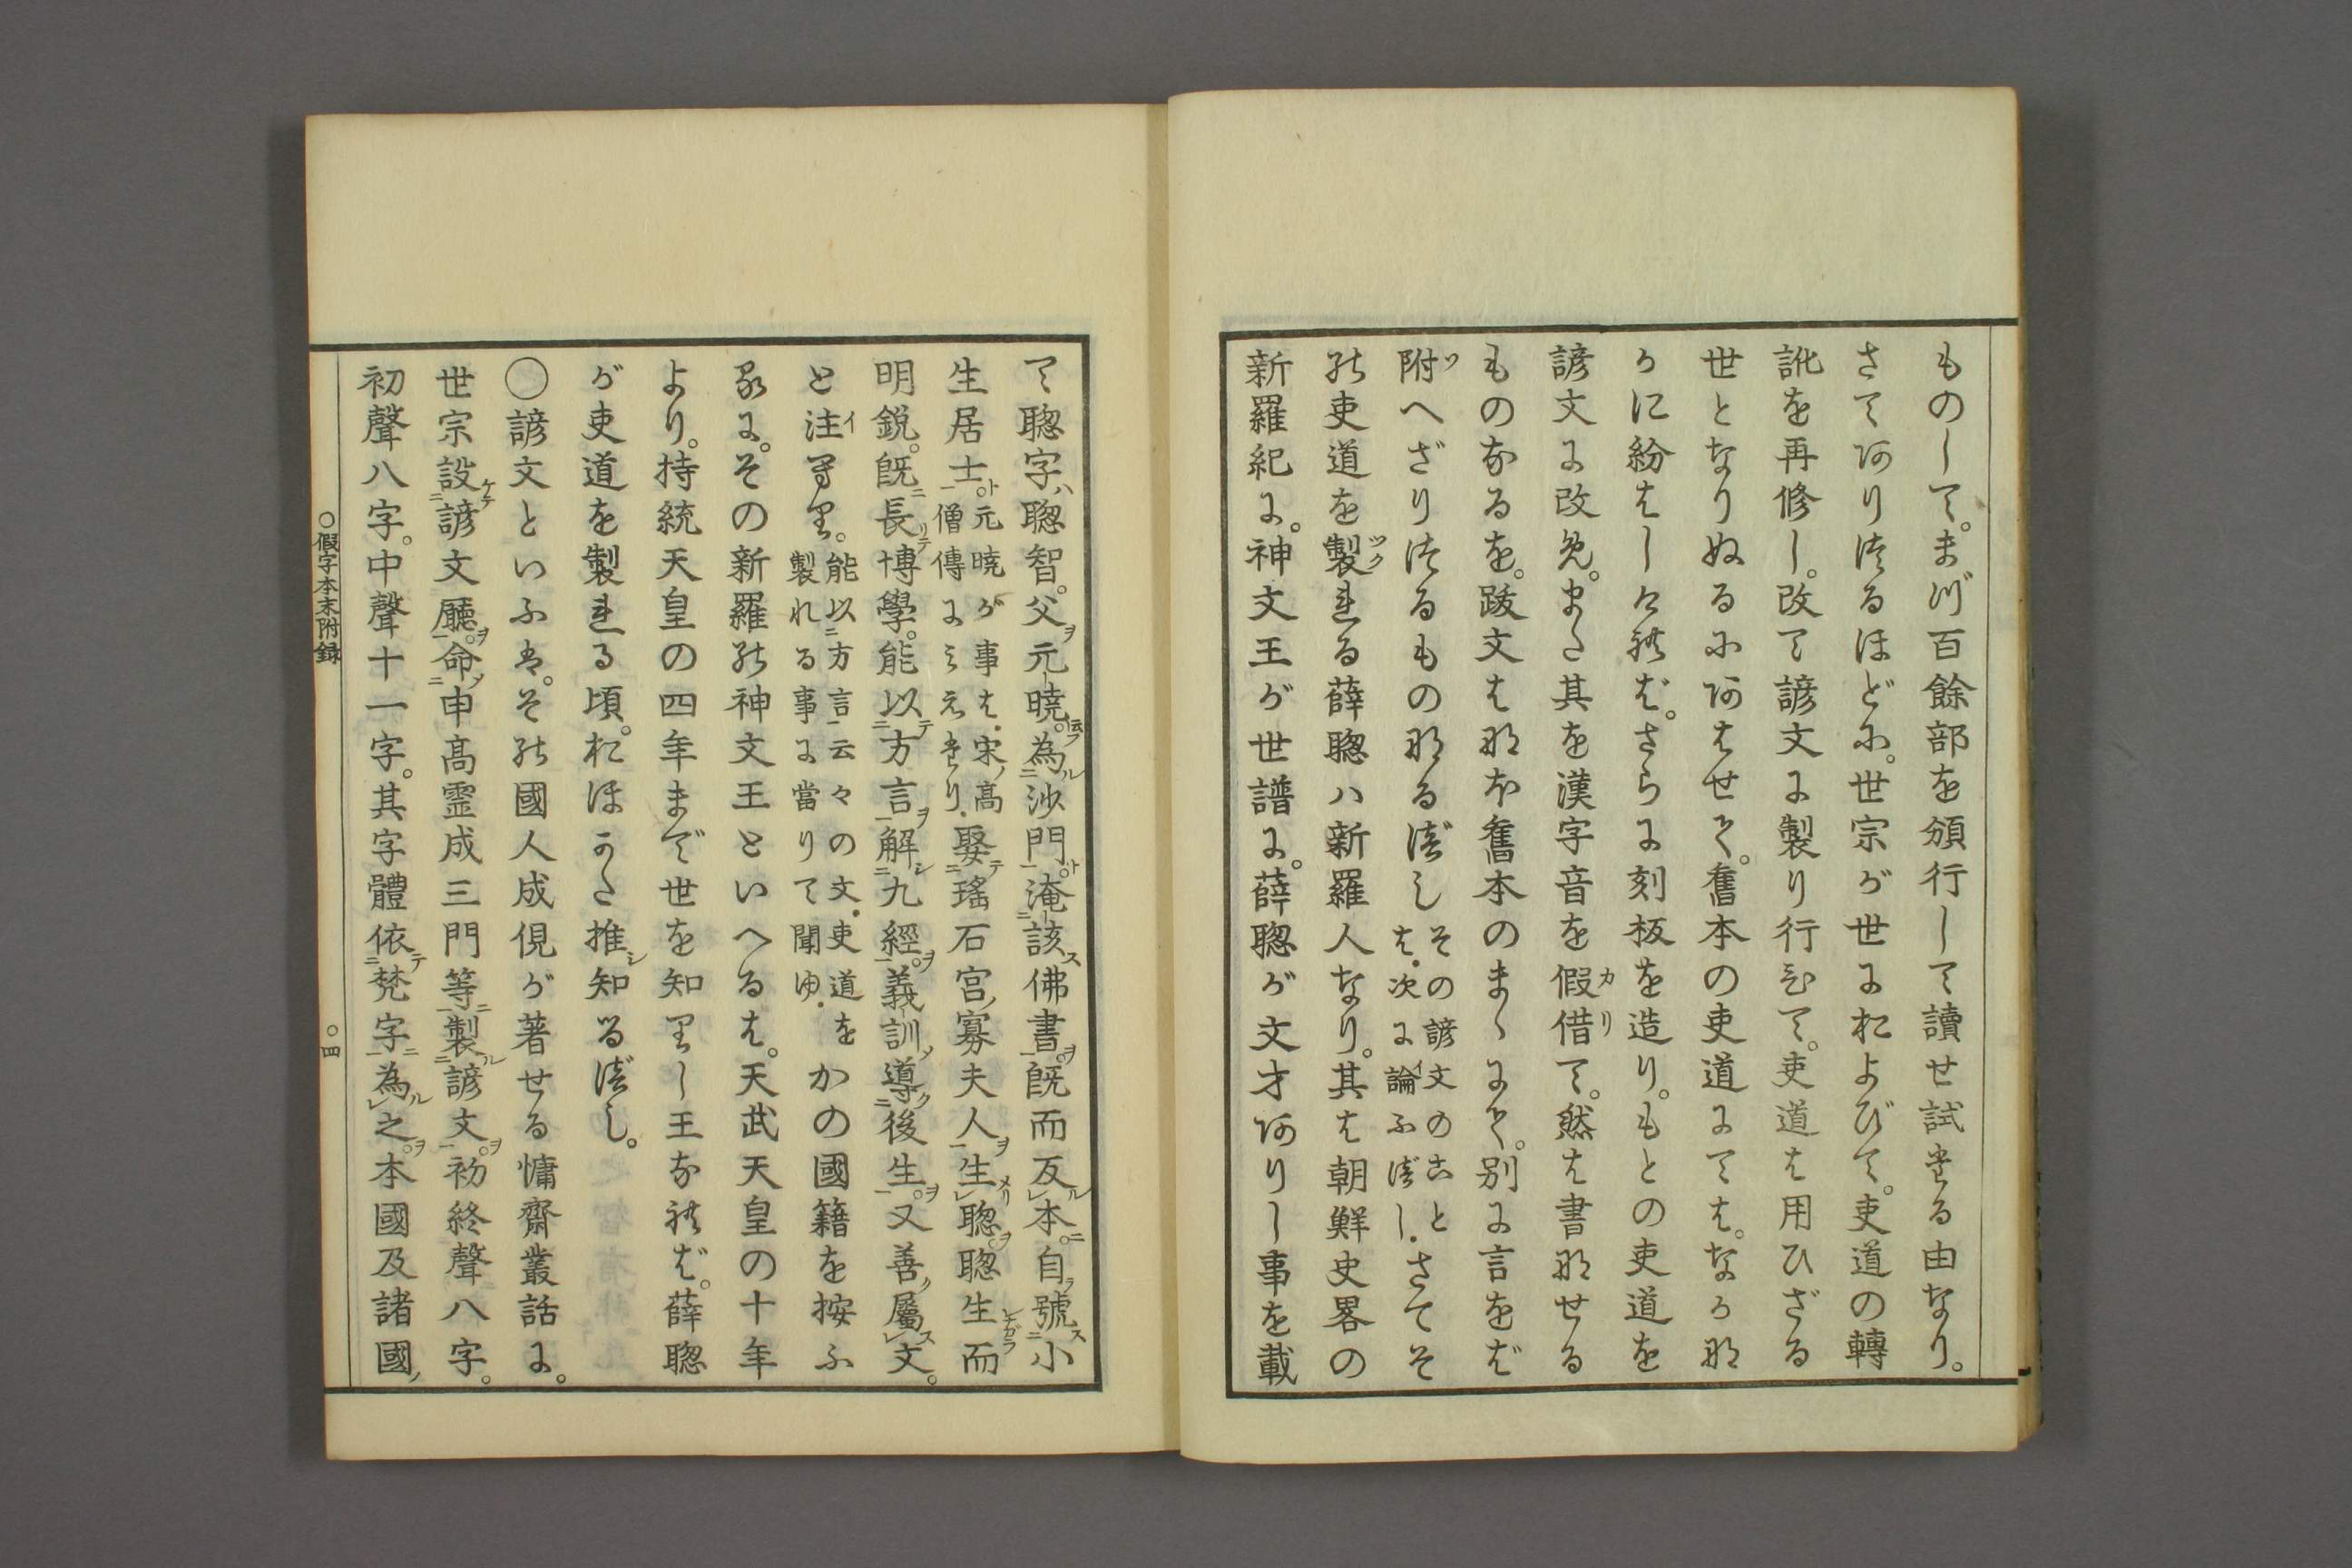 ものして。まづ百餘部を頒行して讀せ試たる由なり。
さてありけるほどに。世宗が世におよびて。吏道の轉
訛を再修し。改て諺文に製り行ひて。吏道は用ひざる
世となりぬるにあはせて。舊本の吏道にては。なかな
かに紛はしければ。さらに刻板を造り。もとの吏道を
諺文に改め。また其を漢字音を假借て。然は書なせる
ものなるを。跋文はなほ舊本のまゝにて。別に言をば
附へざりけるものなるべし
その諺文のこと
は。次に論ふべし。
さてそ
の吏道を製れる薛聰ハ新羅人なり。其は朝鮮史畧の
新羅紀に。神文王が世譜に。薛聰が文才ありし事を載
て聰字ハ聰智。父元曉。為沙門。淹該佛書。既而反本。自號小
生居士。
元曉が事は。宋高
僧傳にみえたり。
娶瑤石宮寡夫人。生聰。聰生而
明鋭。既長博學。能以方言解九經。義訓導後生。又善屬文。
と注せり。
能以方言云々の文。吏道を
製れる事に當りて聞ゆ。
かの國籍を按ふ
るに。その新羅の神文王といへるは。天武天皇の十年
より。持統天皇の四年まで世を知りし王なれば。薛聰
が吏道を製れる頃。おほかた推知るべし。
〇諺文といふは。その國人成俔が著せる慵齋叢話に。
世宗設諺文廳。命申高靈成三門等製諺文。初終聲八字。
初聲八字。中聲十一字。其字體依梵字為之。本國及諸國
〇假字本末附録
〇四